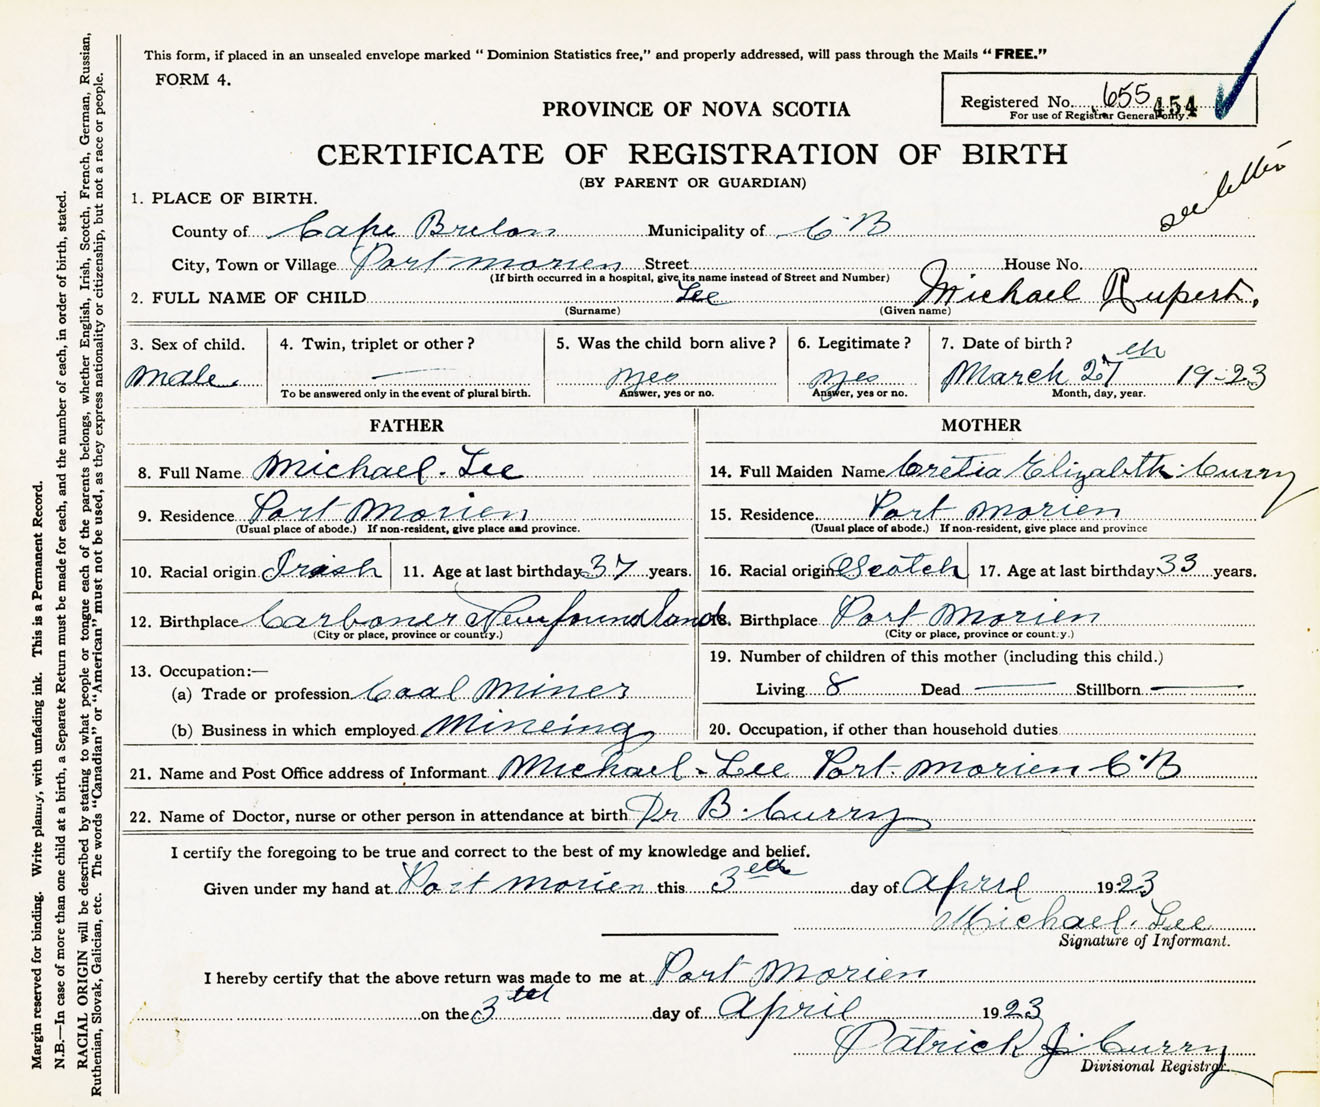 This form, if placed in an unsealed envelope marked " Dominion Statistics free," and properly addressed, will pass through the Mails " FREE."
FORM 4.
PROVINCE OF NOVA SCOTIA
Registered No. 655 454
For use of Registrar General only.
CERTIFICATE OF REGISTRATION OF BIRTH
(BY PARENT OR GUARDIAN)
see letter
1. PLACE OF BIRTH.
County of Cape Breton Municipality of C B
City, Town or Village Port morien Street House No.
(If birth occurred in a hospital, give its name instead of Street and Number)
2. FULL NAME OF CHILD Lee Michael Rupert.
(Surname) (Given name)
3. Sex of child. 4. Twin, triplet or other ? 5. Was the child born alive? 6. Legitimate ? 7. Date of birth ?
male yes yes March 27th 19-23
To be answered only in the event of plural birth. Answer, yes or no. Answer, yes or no. Month, day, year.
FATHER MOTHER
8. Full Name Michael Lee 14. Full Maiden Name Cretia Elizabeth Curry
9. Residence Port Morien 15. Residence Port morien
(Usual place of abode.) If non-resident, give place and province. (Usual place of abode.) If non-resident, give place and province
10. Racial origin Irish 11. Age at last birthday 37 years. 16. Racial origin Scotch 17. Age at last birthday 33 years.
12. Birthplace Carboner Newfoundland 18. Birthplace Port Morien
(City or place, province or country.) (City or place, province or country.)
13. Occupation:— 19. Number of children of this mother (including this child.)
(a) Trade or profession Coal Miner Living 8 Dead — Stillborn —
(b) Business in which employed Mineing 20. Occupation, if other than household duties
21. Name and Post Office address of Informant Michael Lee Port morien C B
22. Name of Doctor, nurse or other person in attendance at birth Dr B. Curry
I certify the foregoing to be true and correct to the best of my knowledge and belief.
Given under my hand at Port morien this 3 day of April 1923
Michael Lee
Signature of Informant.
I hereby certify that the above return was made to me at Port Morien
on the 3 day of April 1923
Patrick J. Curry
Divisional Registrar.
Margin reserved for binding. Write plainly, with unfading ink. This is a Permanent Record.
N.B.—In case of more than one child at a birth, a Separate Return must be made for each, and the number of each, in order of birth, stated.
RACIAL ORIGIN will be described by stating to what people or tongue each of the parents belongs, whether English, Irish, Scotch, French, German, Russian,
Ruthenian, Slovak, Galician, etc. The words "Canadian" or "American" must not be used, as they express nationality or citizenship, but not a race or people.